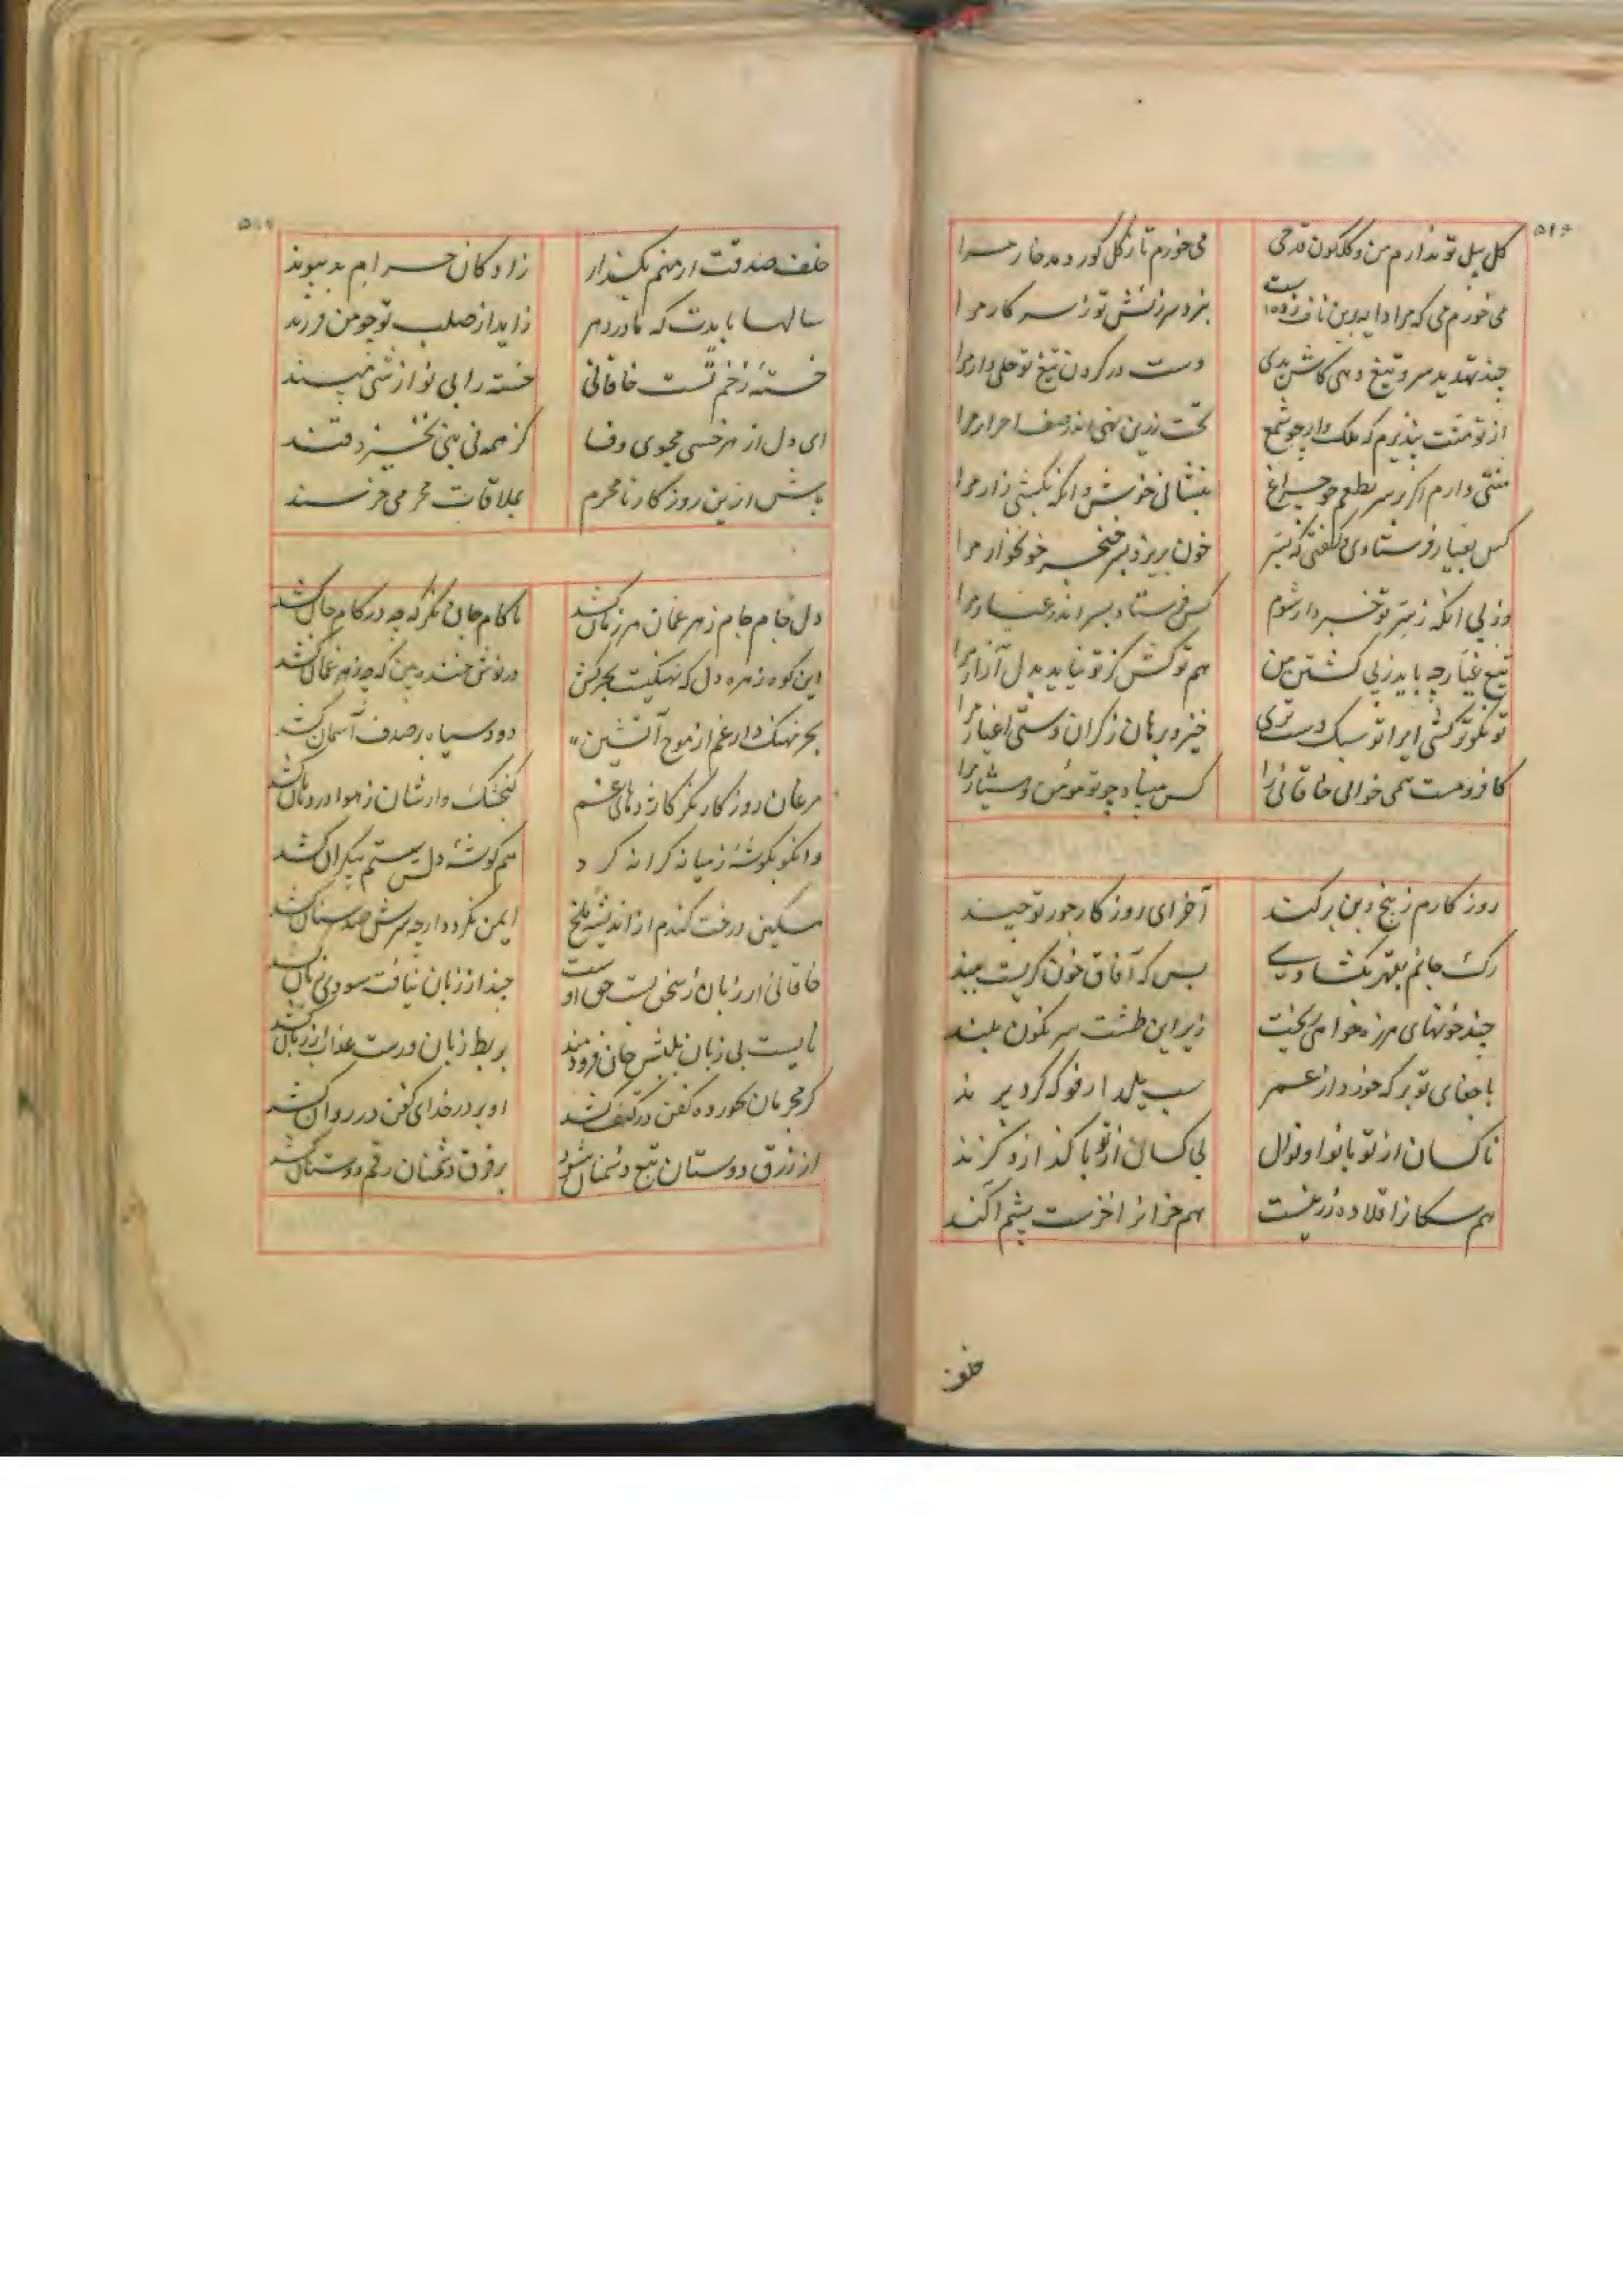 ۵۱۶
گل بیل تو ندارم من و گلگون قدحی می خورم تا ز گل گور دمد خار مرا
می خورم می که مرا دایه برین ناف زده است نبرد سرزنش تو ز سر کار مرا
چند تهدید سر و تیغ دهی کاش بدی دست در گردن تیغ تو حلی وار مرا
از تو منت پذیرم که ملک وار چو شمع تخت زرین نهی اندر صف احرار مرا
منتی دارم اگر بر سر نطعم چو چراغ بنشانی خوش و انگه بکشی زار مرا
کس بعیار فرستادی و گفتی که بسر خون بریزد بسر خنجر خونخوار مرا
وز پی انکه ز سر تو خبردار شوم کس فرستاد بسر اندر عیار مرا
تیغ عیار چه باید ز پی کشتن من هم تو کش کز تو نیاید بدل آزار مرا
تو نکوتر کشی ایرا تو سبک دست تری خیز و برهان ز گران دستی اغیار مرا
کافر مست همی خوانی خاقانی را کس مبیناد چو تو مؤمن و هشیار مرا
روزگارم ز بیخ و بن برکند آخر ای روزگار جور تو چند
رگ جانم بقهر بگشادی بس که آفاق خون گریست ببند
چند خونهای هرزه خواهی ریخت زیر این طشت سرنگون بلند
با جفای تو بر که خورد از عمر سیب پلدار فوکه کردیر ند
ناکسان از تو با نوا و نوال بی کسان از تو با گداز و گزند
هم سگانرا قلاده زرینست هم خرانرا خزست پشم آگند
خلف
خلف صدقت ار منم بگذار زادگان حرام بد پیوند
سالها بایدت که مادر دهر زاید از صلب تو چو من فرزند
خستۀ زخم تست خاقانی خسته را بی نوازشی مپسند
ای دل از هر خسی مجوی وفا کز همه نی بنی نخیزد قند
باش ازین روزگار نامحرم بملاقات محرمی خرسند
دل جام جام زهر غمان هر زمان کشد ناکام جان نگر که چه در کام جان کشد
این کوه زهره دل که نهنگیست بحر کش در نوش خنده بین که چه زهر غمان کشد
بحر نهنگ دار غم از موج آتشین دود سیاه بر صدف آسمان کشد
مرغان روزگار نگر کاژدهای غم گنجشک وارشان ز هوا در دهان کشد
وانکو بگوشۀ ز میانه کرانه کرد هم گوشۀ دلش ستم بیکران کشد
مسکین درخت گندم از اندیشۀ ملخ ایمن نگردد ارچه سرش صد سنان کشد
خاقانی ار زبان ز سخن بست حق اوست چند از زبان نیافته سودی زیان کشد
نایست بی زبان بلبش جان فرو دمند بربط زبان ورست عذاب از زبان کشد
گر محرمان بخورده کفن در کتف کشند او بر در خدای کفن در روان کشد
از زرق دوستان تبع دشمنان شود بر فرق دشمنان رقم دوستان کشد